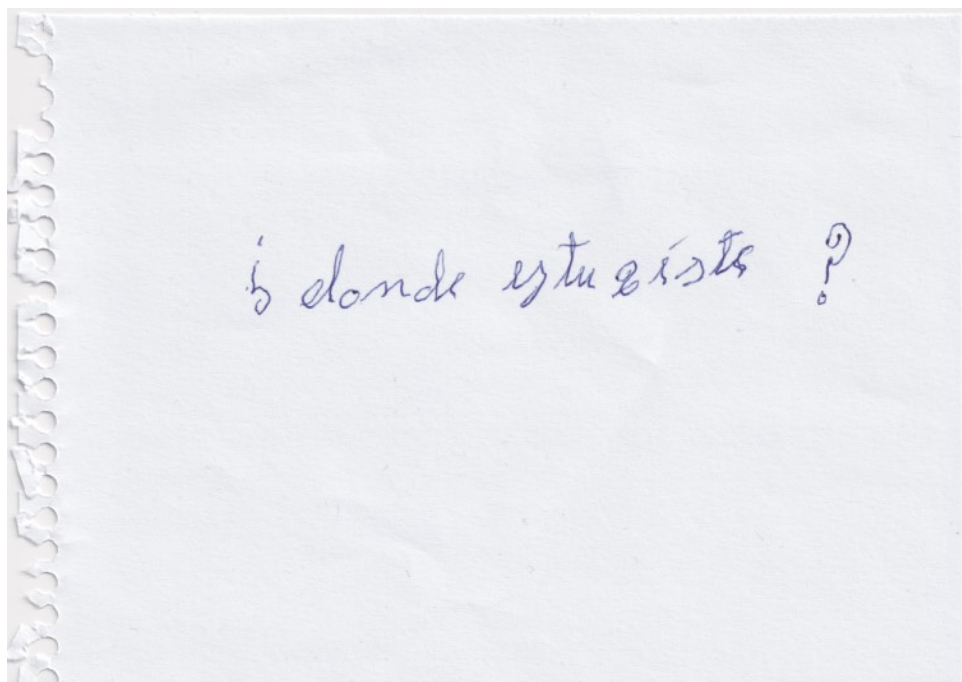 ¿ donde estubiste ?